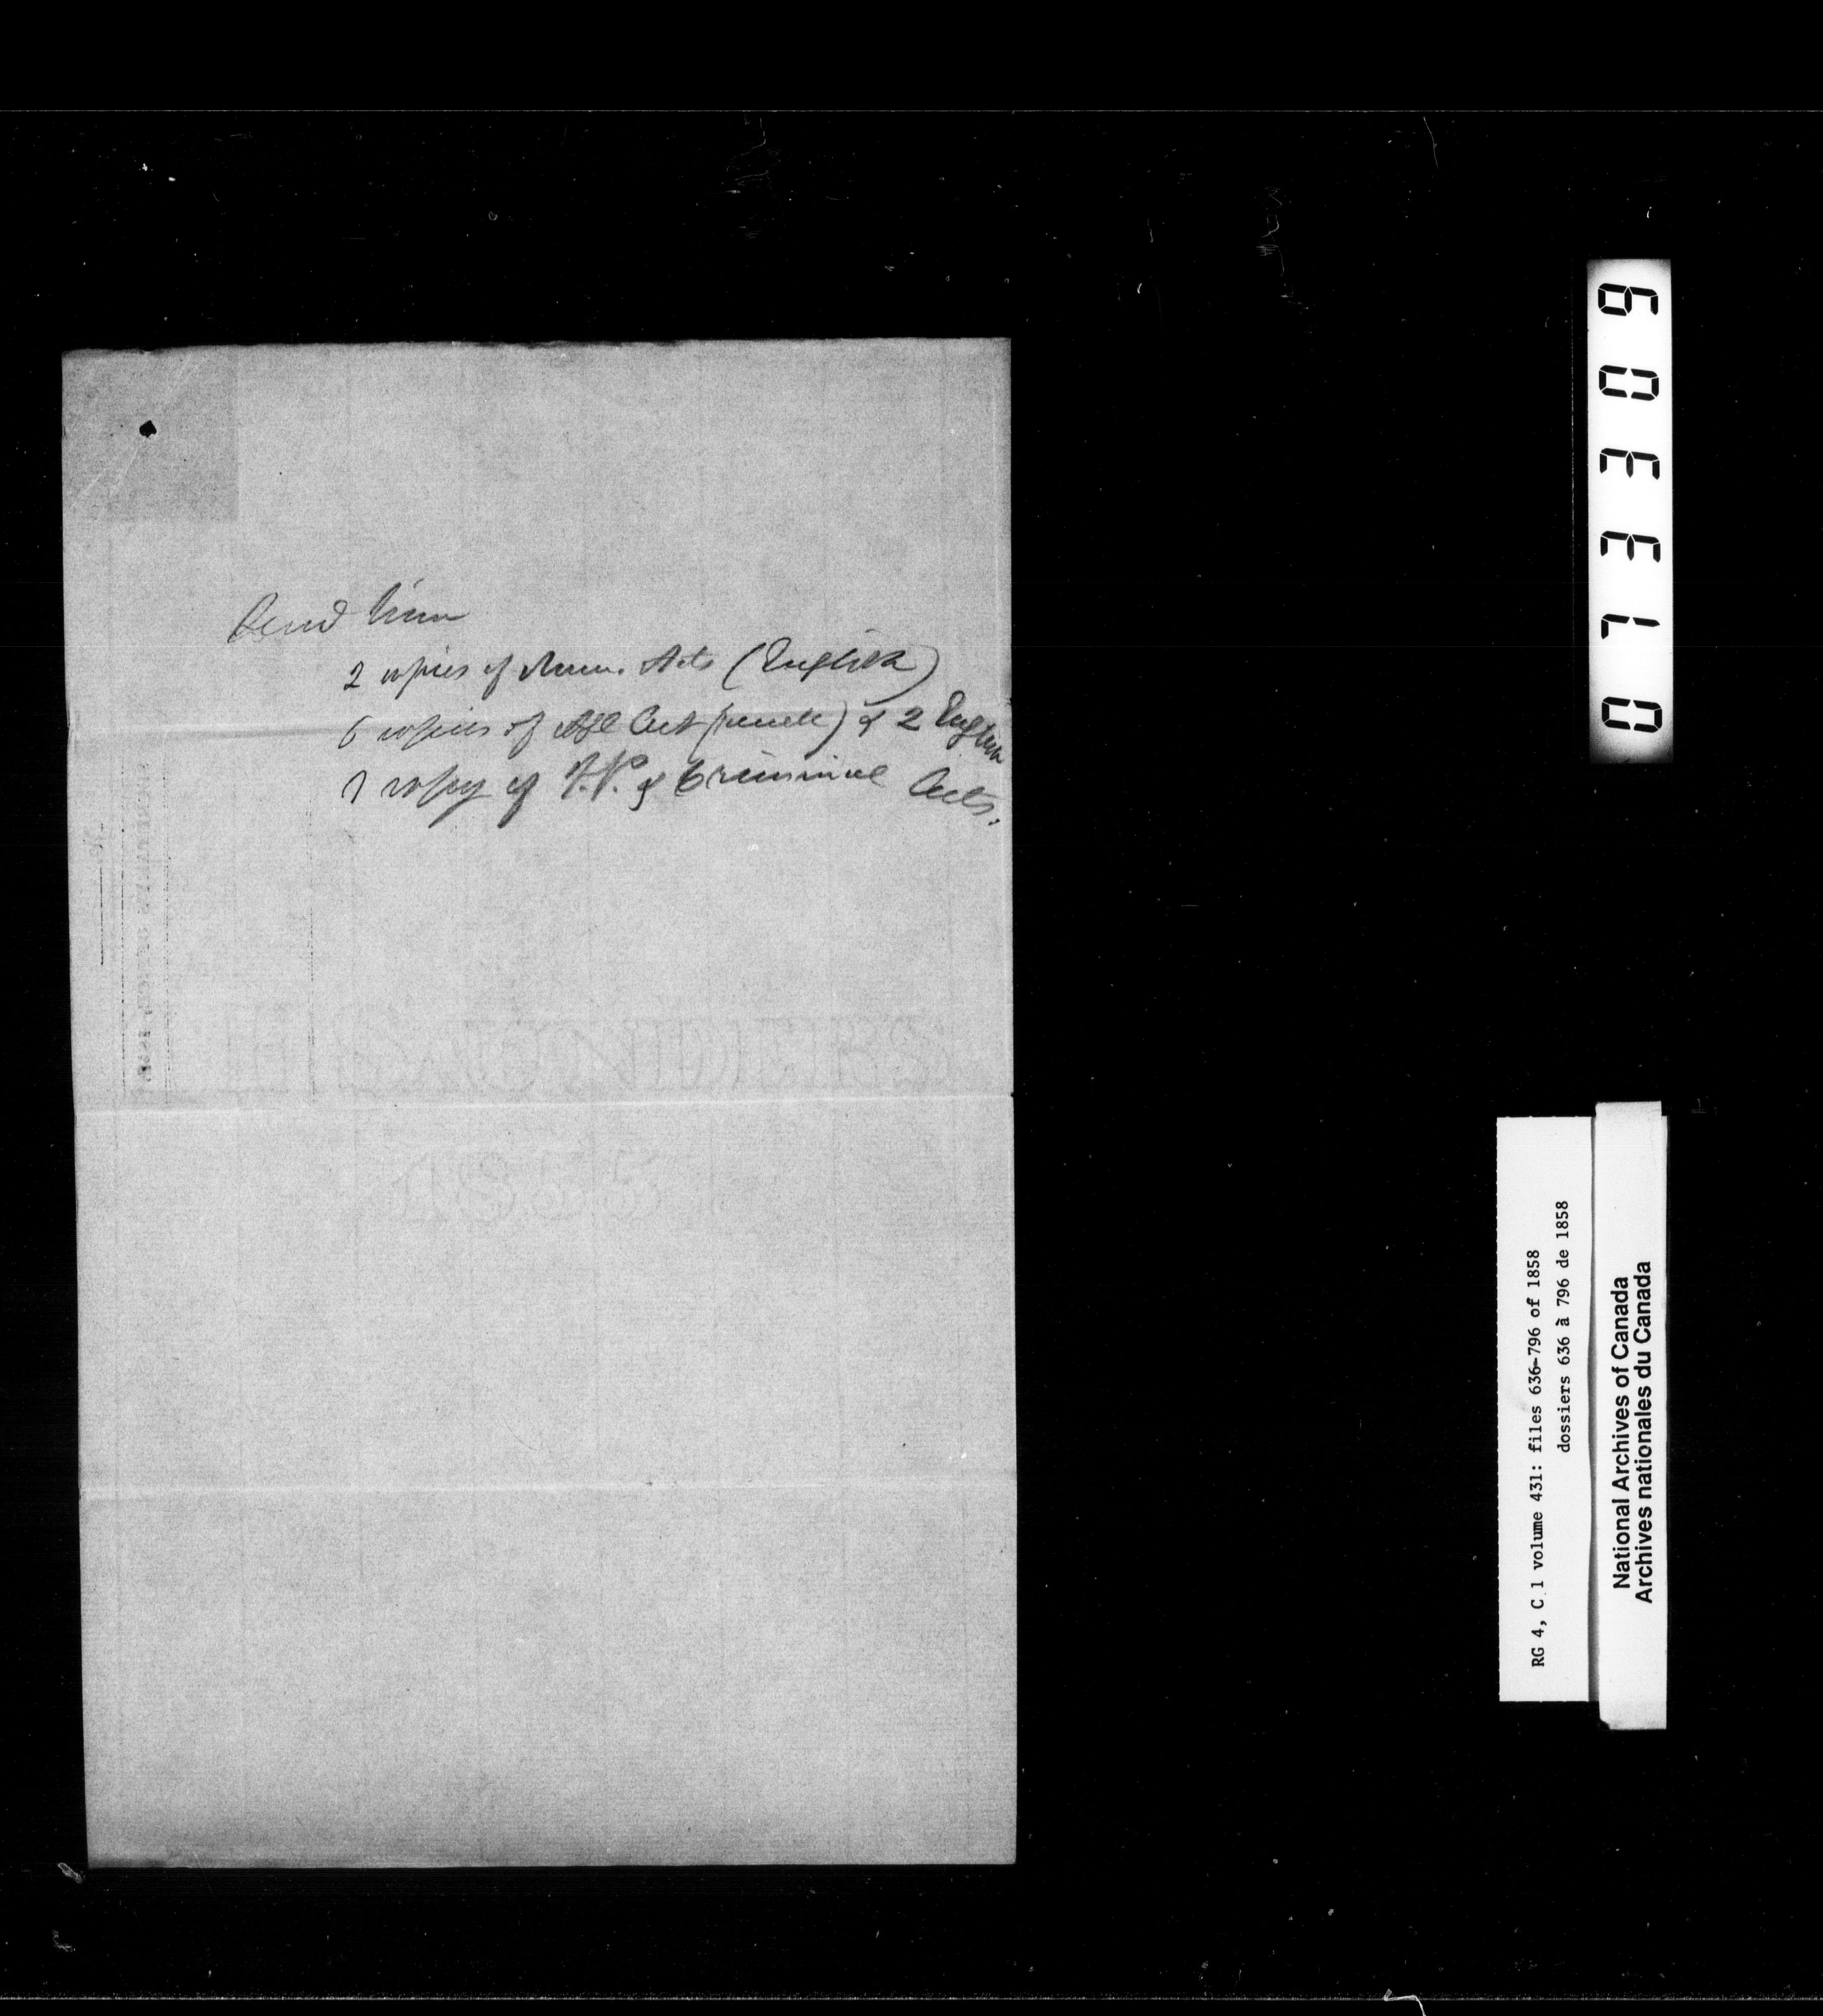 Send him
2 copies of Mun. Acts (English)
6 copies of Agl Act (french) & 2 English
1 copy of J.P. & Criminal Acts.
013309
RG 4, C 1 volume 431: files 636-796 of 1858
dossiers 636 à 796 de 1858
National Archives of Canada
Archives nationales du Canada